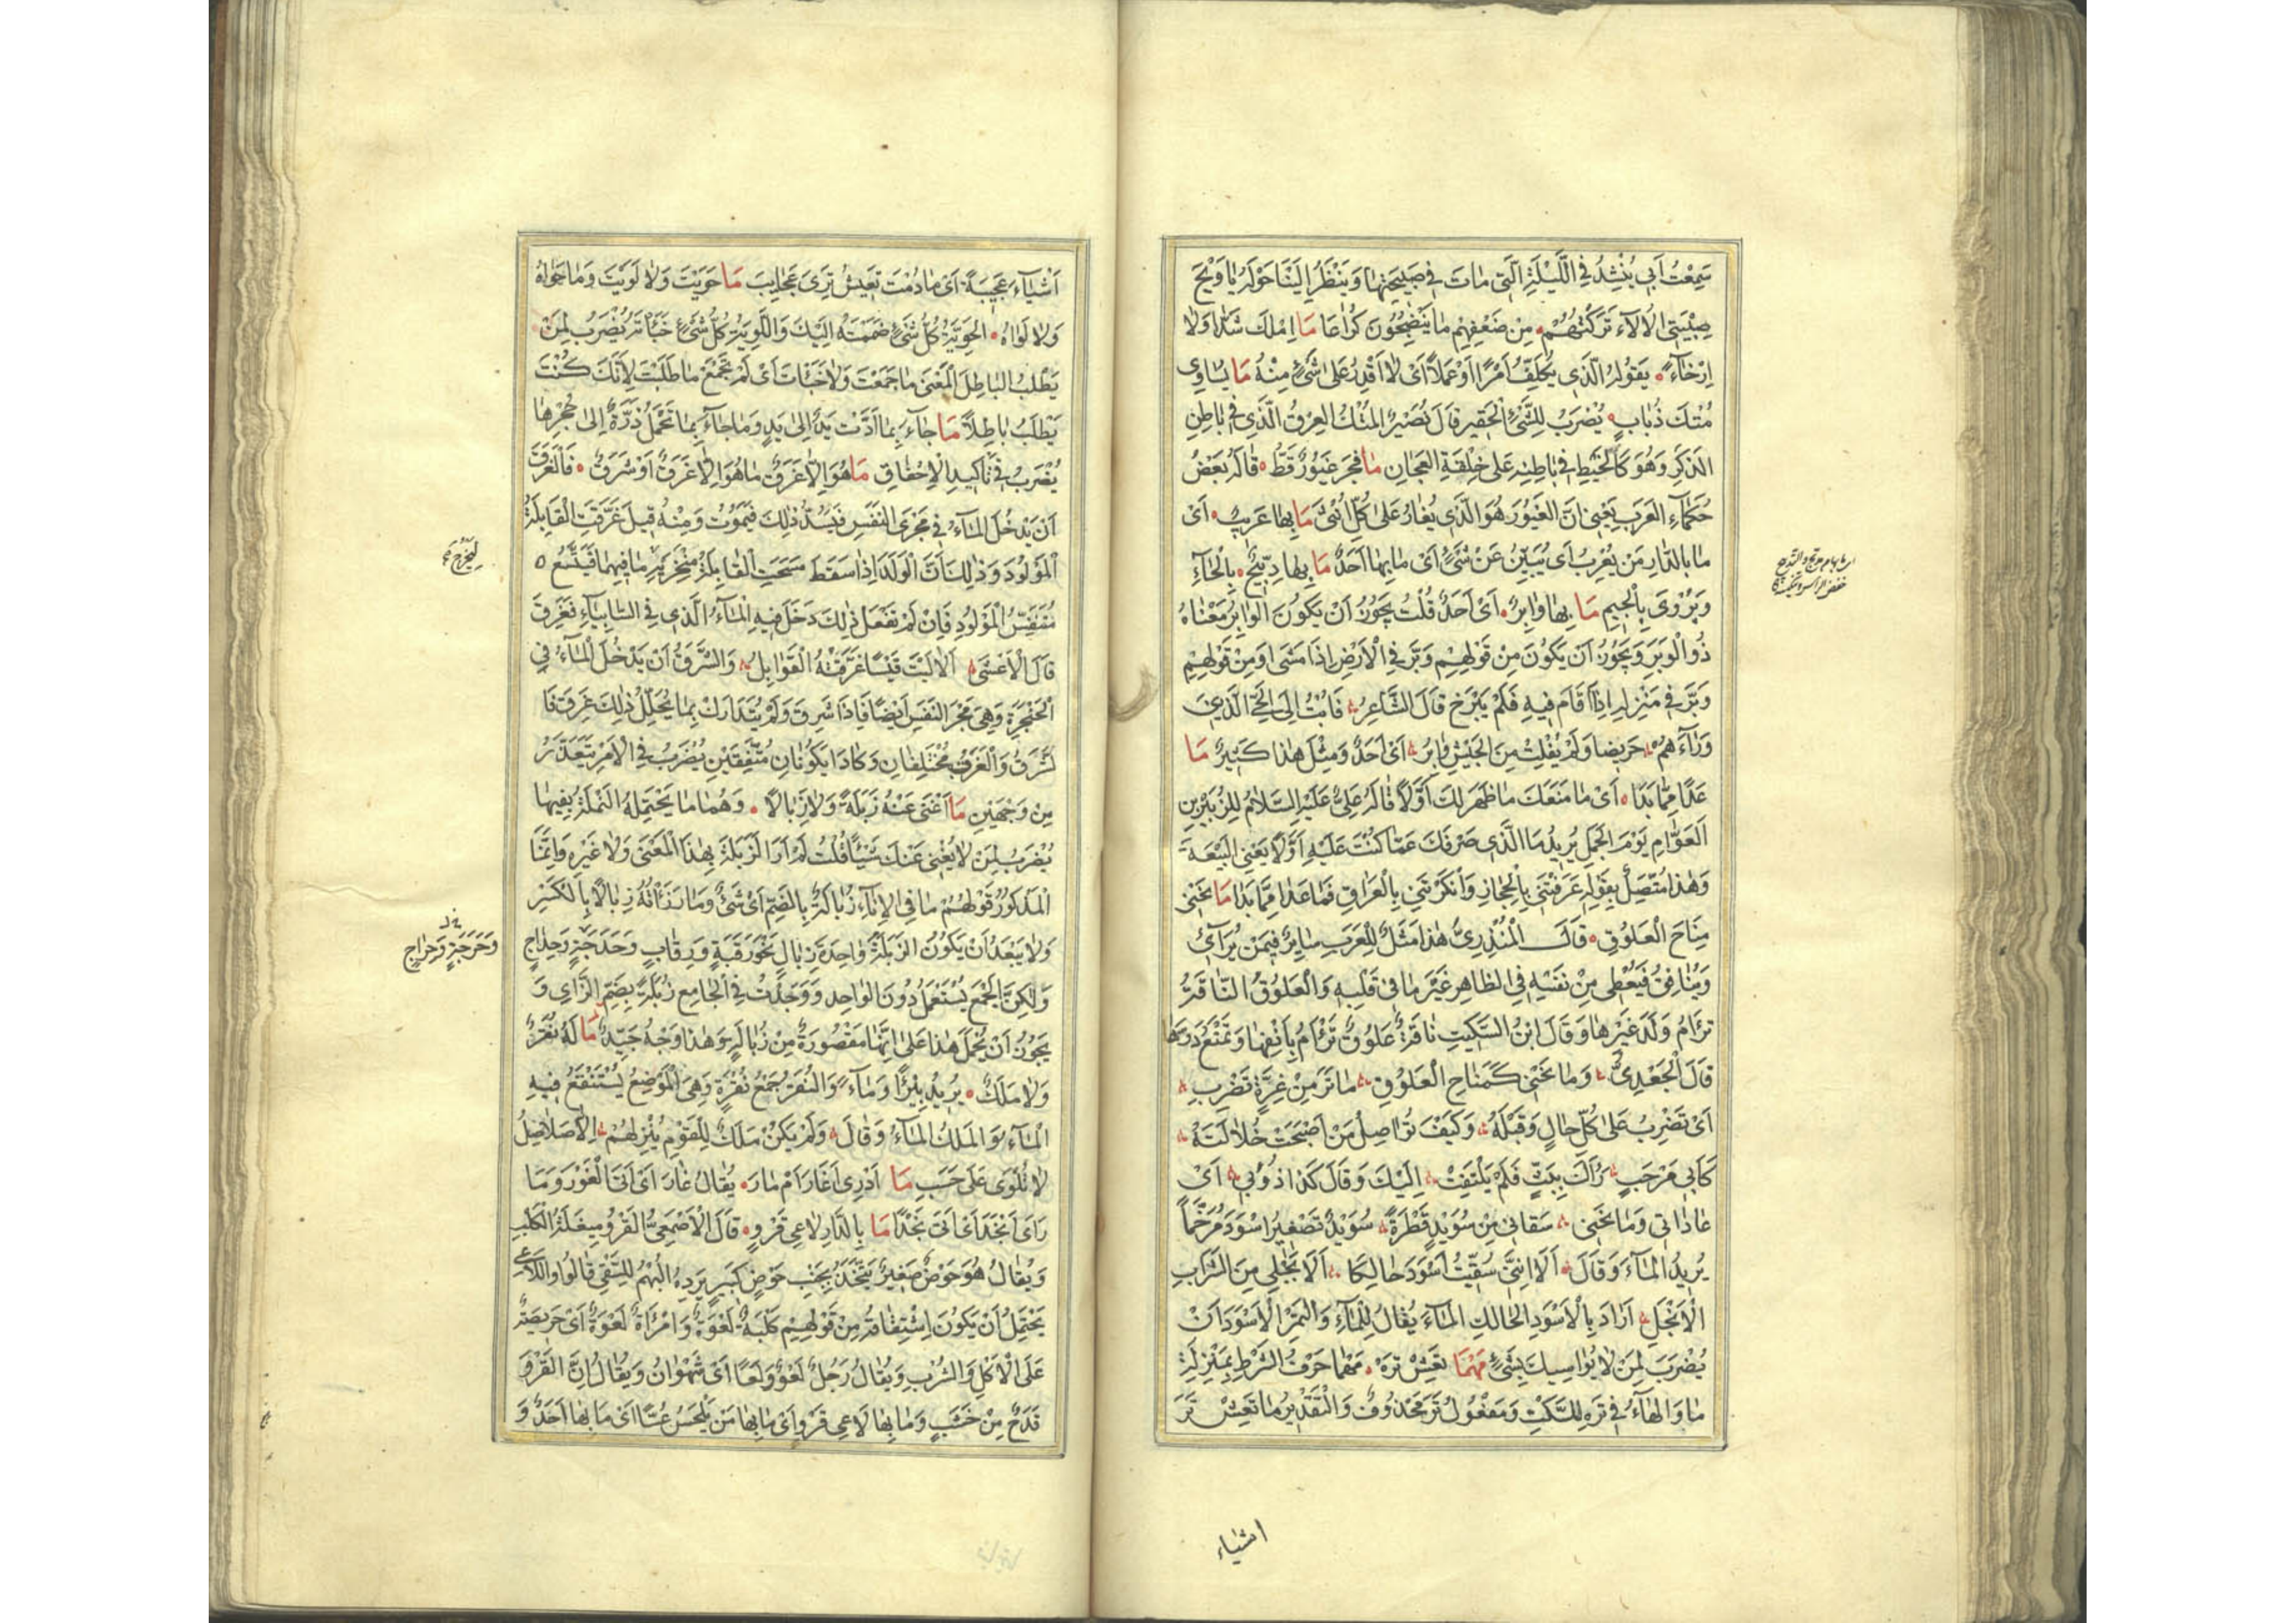 سَمِعْتُ اَبِى يُنْشِدُ فِى اللَّيْلَةِ الَّتِى مَاتَ فِى صَبِيحَتِهَا وَيَنْظُرُ اِلَيْنَا حَوْلَهُ يَا وَيْحَ
صِبْيَتِى الْاُلَآءِ تَرَكْتُهُمْ مِنْ ضَعْفِهِمْ مَا يُنْضِجُونَ كُرَاعَا مَا اَمْلِكُ شَدًّا وَلَا
اِرْخَآءً يَقُولُهُ الَّذِى يُكَلَّفُ اَمْرًا اَوْ عَمَلًا اَىْ لَا اَقْدِرُ عَلَى شَىْءٍ مِنْهُ مَا يُسَاوِى
مُتْكَ ذُبَابٍ يُضْرَبُ لِلشَّىْءِ الْحَقِيرِ قَالَ نُصَيْرٌ الْمُتْكُ الْعِرْقُ الَّذِى فِى بَاطِنِ
الذَّكَرِ وَهُوَ كَالْخَيْطِ فِى بَاطِنِهِ عَلَى خِلْقَةِ الْعِجَانِ مَا فَجَرَ غَيُورٌ قَطُّ قَالَهُ بَعْضُ
حُكَمَآءِ الْعَرَبِ يَعْنِى اَنَّ الْغَيُورَ هُوَ الَّذِى يَغَارُ عَلَى كُلِّ اُنْثَى مَا بِهَا عَرِيبٌ اَىْ
مَا بِالدَّارِ مَنْ يُعْرِبُ اَىْ يُبَيِّنُ عَنْ شَىْءٍ اَىْ مَا بِهَا اَحَدٌ مَا بِهَا دِبِّيحٌ بِالْحَآءِ
وَيُرْوَى بِالْجِيمِ مَا بِهَا وَابِرٌ اَىْ اَحَدٌ قُلْتُ يَجُوزُ اَنْ يَكُونَ الْوَابِرُ مَعْنَاهُ
ذُو الْوَبَرِ وَيَجُوزُ اَنْ يَكُونَ مِنْ قَوْلِهِمْ وَبَّرَ فِى الْاَرْضِ اِذَا مَشَى اَوْ مِنْ قَوْلِهِمْ
وَبَّرَ فِى مَنْزِلِهِ اِذَا اَقَامَ فِيهِ فَلَمْ يَبْرَحْ قَالَ الشَّاعِرُ فَاُبْتُ اِلَى الْحَىِّ الَّذِينَ
وَرَآءَهُمْ جَرِيضًا وَلَمْ يُفْلِتْ مِنَ الْجَيْشِ وَابِرُ اَىْ اَحَدٌ وَمِثْلُ هٰذَا كَثِيرٌ مَا
عَدَا مِمَّا بَدَا اَىْ مَا مَنَعَكَ مَا ظَهَرَ لَكَ اَوَّلًا قَالَهُ عَلِىٌّ عَلَيْهِ السَّلَامُ لِلزُّبَيْرِ بْنِ
الْعَوَّامِ يَوْمَ الْجَمَلِ يُرِيدُ مَا الَّذِى صَرَفَكَ عَمَّا كُنْتَ عَلَيْهِ اَوَّلًا يَعْنِى الْبَيْعَةَ
وَهٰذَا مُتَّصِلٌ بِقَوْلِهِ عَرَفْتَنِى بِالْحِجَازِ وَاَنْكَرْتَنِى بِالْعِرَاقِ فَمَا عَدَا مِمَّا بَدَا مَا نَحَنِى
مِنَاحَ الْعَلُوقِ قَالَ الْمُنْذِرِىُّ هٰذَا مَثَلٌ لِلْعَرَبِ سَايِرٌ فِيمَنْ يُرَآئِى
وَيُنَافِقُ فَيُعْطِى مِنْ نَفْسِهِ فِى الظَّاهِرِ غَيْرَ مَا فِى قَلْبِهِ وَالْعَلُوقُ النَّاقَةُ
تَرْاَمُ وَلَدَ غَيْرِهَا وَقَالَ ابْنُ السِّكِّيتِ نَاقَةٌ عَلُوقٌ تَرْاَمُ بِاَنْفِهَا وَتَمْنَعُ دِرَّتَهَا
قَالَ الْجَعْدِىُّ وَمَا نَحَنِى كَمِنَاحِ الْعَلُوقِ مَا تَرَ مِنْ غِرَّةٍ تَضْرِبِ
اَىْ تَضْرِبُ عَلَى كُلِّ حَالٍ وَقَبْلَهُ وَكَيْفَ تُوَاصِلُ مَنْ اَصْبَحَتْ خُلَالَتُهُ
كَاَبِى مَرْحَبِ رَآكَ بِبَثٍّ فَلَمْ يَلْتَفِتْ اِلَيْكَ وَقَالَ كَذَا ذُوبِى اَىْ
عَادَاتِى وَمَا نَحَنِى سَقَانِى مِنْ سُوَيْدٍ قَطْرَةً سُوَيْدٌ تَصْغِيرُ اَسْوَدَ مُرَخَّمًا
يُرِيدُ الْمَآءَ وَقَالَ اَلَا اِنَّنِى سُقِيتُ اَسْوَدَ حَالِكًا اَلَا بَجَلِى مِنَ الشَّرَابِ
اَلَا بَجَلْ اَرَادَ بِالْاَسْوَدِ الْحَالِكِ الْمَآءَ يُقَالُ لِلْمَآءِ وَالتَّمْرِ الْاَسْوَدَانِ
يُضْرَبُ لِمَنْ لَا يُوَاسِيكَ بِشَىْءٍ مَهْمَا تَعِشْ تَرَهْ مَهْمَا حَرْفُ الشَّرْطِ بِمَنْزِلَةِ
مَا وَالْهَآءُ فِى تَرَهْ لِلسَّكْتِ وَمَفْعُولُ تَرَ مَحْذُوفٌ وَالتَّقْدِيرُ مَا تَعِشْ تَرَ
اشياء
اَشْيَآءَ عَجِيبَةً اَىْ مَا دُمْتَ تَعِيشُ تَرَى عَجَايِبَ مَا حَوَيْتَ وَلَا لَوَيْتَ وَمَا حَوَاهُ
وَلَا لَوَاهُ الْحَوِيَّةُ كُلُّ شَىْءٍ ضَمَمْتَهُ اِلَيْكَ وَاللَّوِيَّةُ كُلُّ شَىْءٍ خَبَأْتَهُ يُضْرَبُ لِمَنْ
يَطْلُبُ الْبَاطِلَ الْمَعْنَى مَا جَمَعْتَ وَلَا خَبَأْتَ اَىْ لَمْ تَجْمَعْ مَا طَلَبْتَ لِاَنَّكَ كُنْتَ
تَطْلُبُ بَاطِلًا مَا جَآءَ بِمَا اَدَّتْ يَدٌ اِلَى يَدٍ وَمَا جَآءَ بِمَا تَحْمِلُ ذَرَّةٌ اِلَى جُحْرِهَا
يُضْرَبُ فِى تَأْكِيدِ الْاِخْفَاقِ مَا هُوَ اِلَّا غَرَقٌ مَا هُوَ اِلَّا غَرَقٌ اَوْ شَرَقٌ فَالْغَرَقُ
اَنْ يَدْخُلَ الْمَآءُ فِى مَجْرَى النَّفَسِ فَيَسُدَّ ذٰلِكَ فَيَمُوتُ وَمِنْهُ قِيلَ غَرَّقَتِ الْقَابِلَةُ
الْمَوْلُودَ وَذٰلِكَ اَنَّ الْوَلَدَ اِذَا سَقَطَ مَسَحَتِ الْقَابِلَةُ مَنْخِرَيْهِ مَا فِيهِمَا فَيَتَّسِعُ
ليخرج
مُتَنَفَّسُ الْمَوْلُودِ فَاِنْ لَمْ تَفْعَلْ ذٰلِكَ دَخَلَ فِيهِ الْمَآءُ الَّذِى فِى السَّابِيَآءِ فَغَرِقَ
قَالَ الْاَعْشَى اَلَا لَيْتَ قَيْسًا غَرَّقَتْهُ الْقَوَابِلُ وَالشَّرَقُ اَنْ يَدْخُلَ الْمَآءُ فِى
الْحَنْجَرَةِ وَهِىَ مَجْرَ النَّفَسِ اَيْضًا فَاِذَا شَرِقَ وَلَمْ يُتَدَارَكْ بِمَا يُحَلِّلُ ذٰلِكَ غَرِقَ فَا
لشَّرَقُ وَالْغَرَقُ مُخْتَلِفَانِ وَكَادَا يَكُونَانِ مُتَّفِقَيْنِ يُضْرَبُ فِى الْاَمْرِ يَتَعَذَّرُ
مِنْ وَجْهَيْنِ مَا اَغْنَى عَنْهُ زَبَلَةً وَلَا زِبَالًا وَهُمَا مَا يَحْتَمِلُهُ النَّمْلَةُ بِفِيهَا
يُضْرَبُ لِمَنْ لَا يُغْنِى عَنْكَ شَيْئًا قُلْتُ لَمْ اَرَ الزَّبَلَةَ بِهٰذَا الْمَعْنَى وَلَا غَيْرِهِ وَاِنَّمَا
الْمَذْكُورُ قَوْلُهُمْ مَا فِى الْاِنَآءِ زُبَالَةٌ بِالضَّمِّ اَىْ شَىْءٌ وَمَا رَزَأْتُهُ زِبَالًا بِالْكَسْرِ
وَلَا يَبْعُدُ اَنْ يَكُونَ الزَّبَلَةُ وَاحِدَةَ زِبَالٍ نَحْوُ رَقَبَةٍ وَرِقَابٍ وَحَدَجَةٍ وَحِدَاجٍ
وَحَرَجَةٍ وَحِرَاجٍ
وَلٰكِنَّ الْجَمْعَ يُسْتَعْمَلُ دُونَ الْوَاحِدِ وَوَجَدْتُ فِى الْجَامِعِ زُبْلَةً بِضَمِّ الزَّاىِ وَ
يَجُوزُ اَنْ يُحْمَلَ هٰذَا عَلَى اَنَّهَا مَقْصُورَةٌ مِنْ زُبَالَةٍ وَهٰذَا وَجْهٌ جَيِّدٌ مَا لَهُ نُقَرٌ
وَلَا مَلَكٌ يُرِيدُ بِئْرًا وَمَآءً وَالنُّقَرُ جَمْعُ نُقْرَةٍ وَهِىَ الْمَوْضِعُ يَسْتَنْقِعُ فِيهِ
الْمَآءُ وَالْمَلَكُ الْمَآءُ وَقَالَ وَلَمْ يَكُنْ مَلَكٌ لِلْقَوْمِ يُنْزِلُهُمْ اِلَّا صَلَاصِلُ
لَا تُلْوَى عَلَى حَسَبِ مَا اَدْرِى اَغَارَ اَمْ مَارَ يُقَالُ غَارَ اَىْ اَتَى الْغَوْرَ وَمَا
رَاَى اَنْجَدَ اَىْ اَتَى نَجْدًا مَا بِالدَّارِ لَاعِى قَرْوٍ قَالَ الْاَصْمَعِىُّ الْقَرْوُ مِيلَغَةُ الْكَلْبِ
وَيُقَالُ هُوَ حَوْضٌ صَغِيرٌ يُتَّخَذُ بِجَنْبِ حَوْضٍ كَبِيرٍ يَرِدُهُ الْبَهْمُ لِلسَّقْىِ قَالُوا وَاللَّاعِى
يَحْتَمِلُ اَنْ يَكُونَ اِشْتِقَاقُهُ مِنْ قَوْلِهِمْ كَلْبَةٌ لَعْوَةٌ وَامْرَاَةٌ لَعْوَةٌ اَىْ حَرِيصَةٌ
عَلَى الْاَكْلِ وَالشُّرْبِ وَيُقَالُ رَجُلٌ لَعْوٌ وَلَعًا اَىْ شَهْوَانُ وَيُقَالُ اِنَّ الْقَرْوَ
قَدَحٌ مِنْ خَشَبٍ وَمَا بِهَا لَاعِى قَرْوٍ اَىْ مَا بِهَا مَنْ يَلْحَسُ عُسًّا اَىْ مَا بِهَا اَحَدٌ وَ